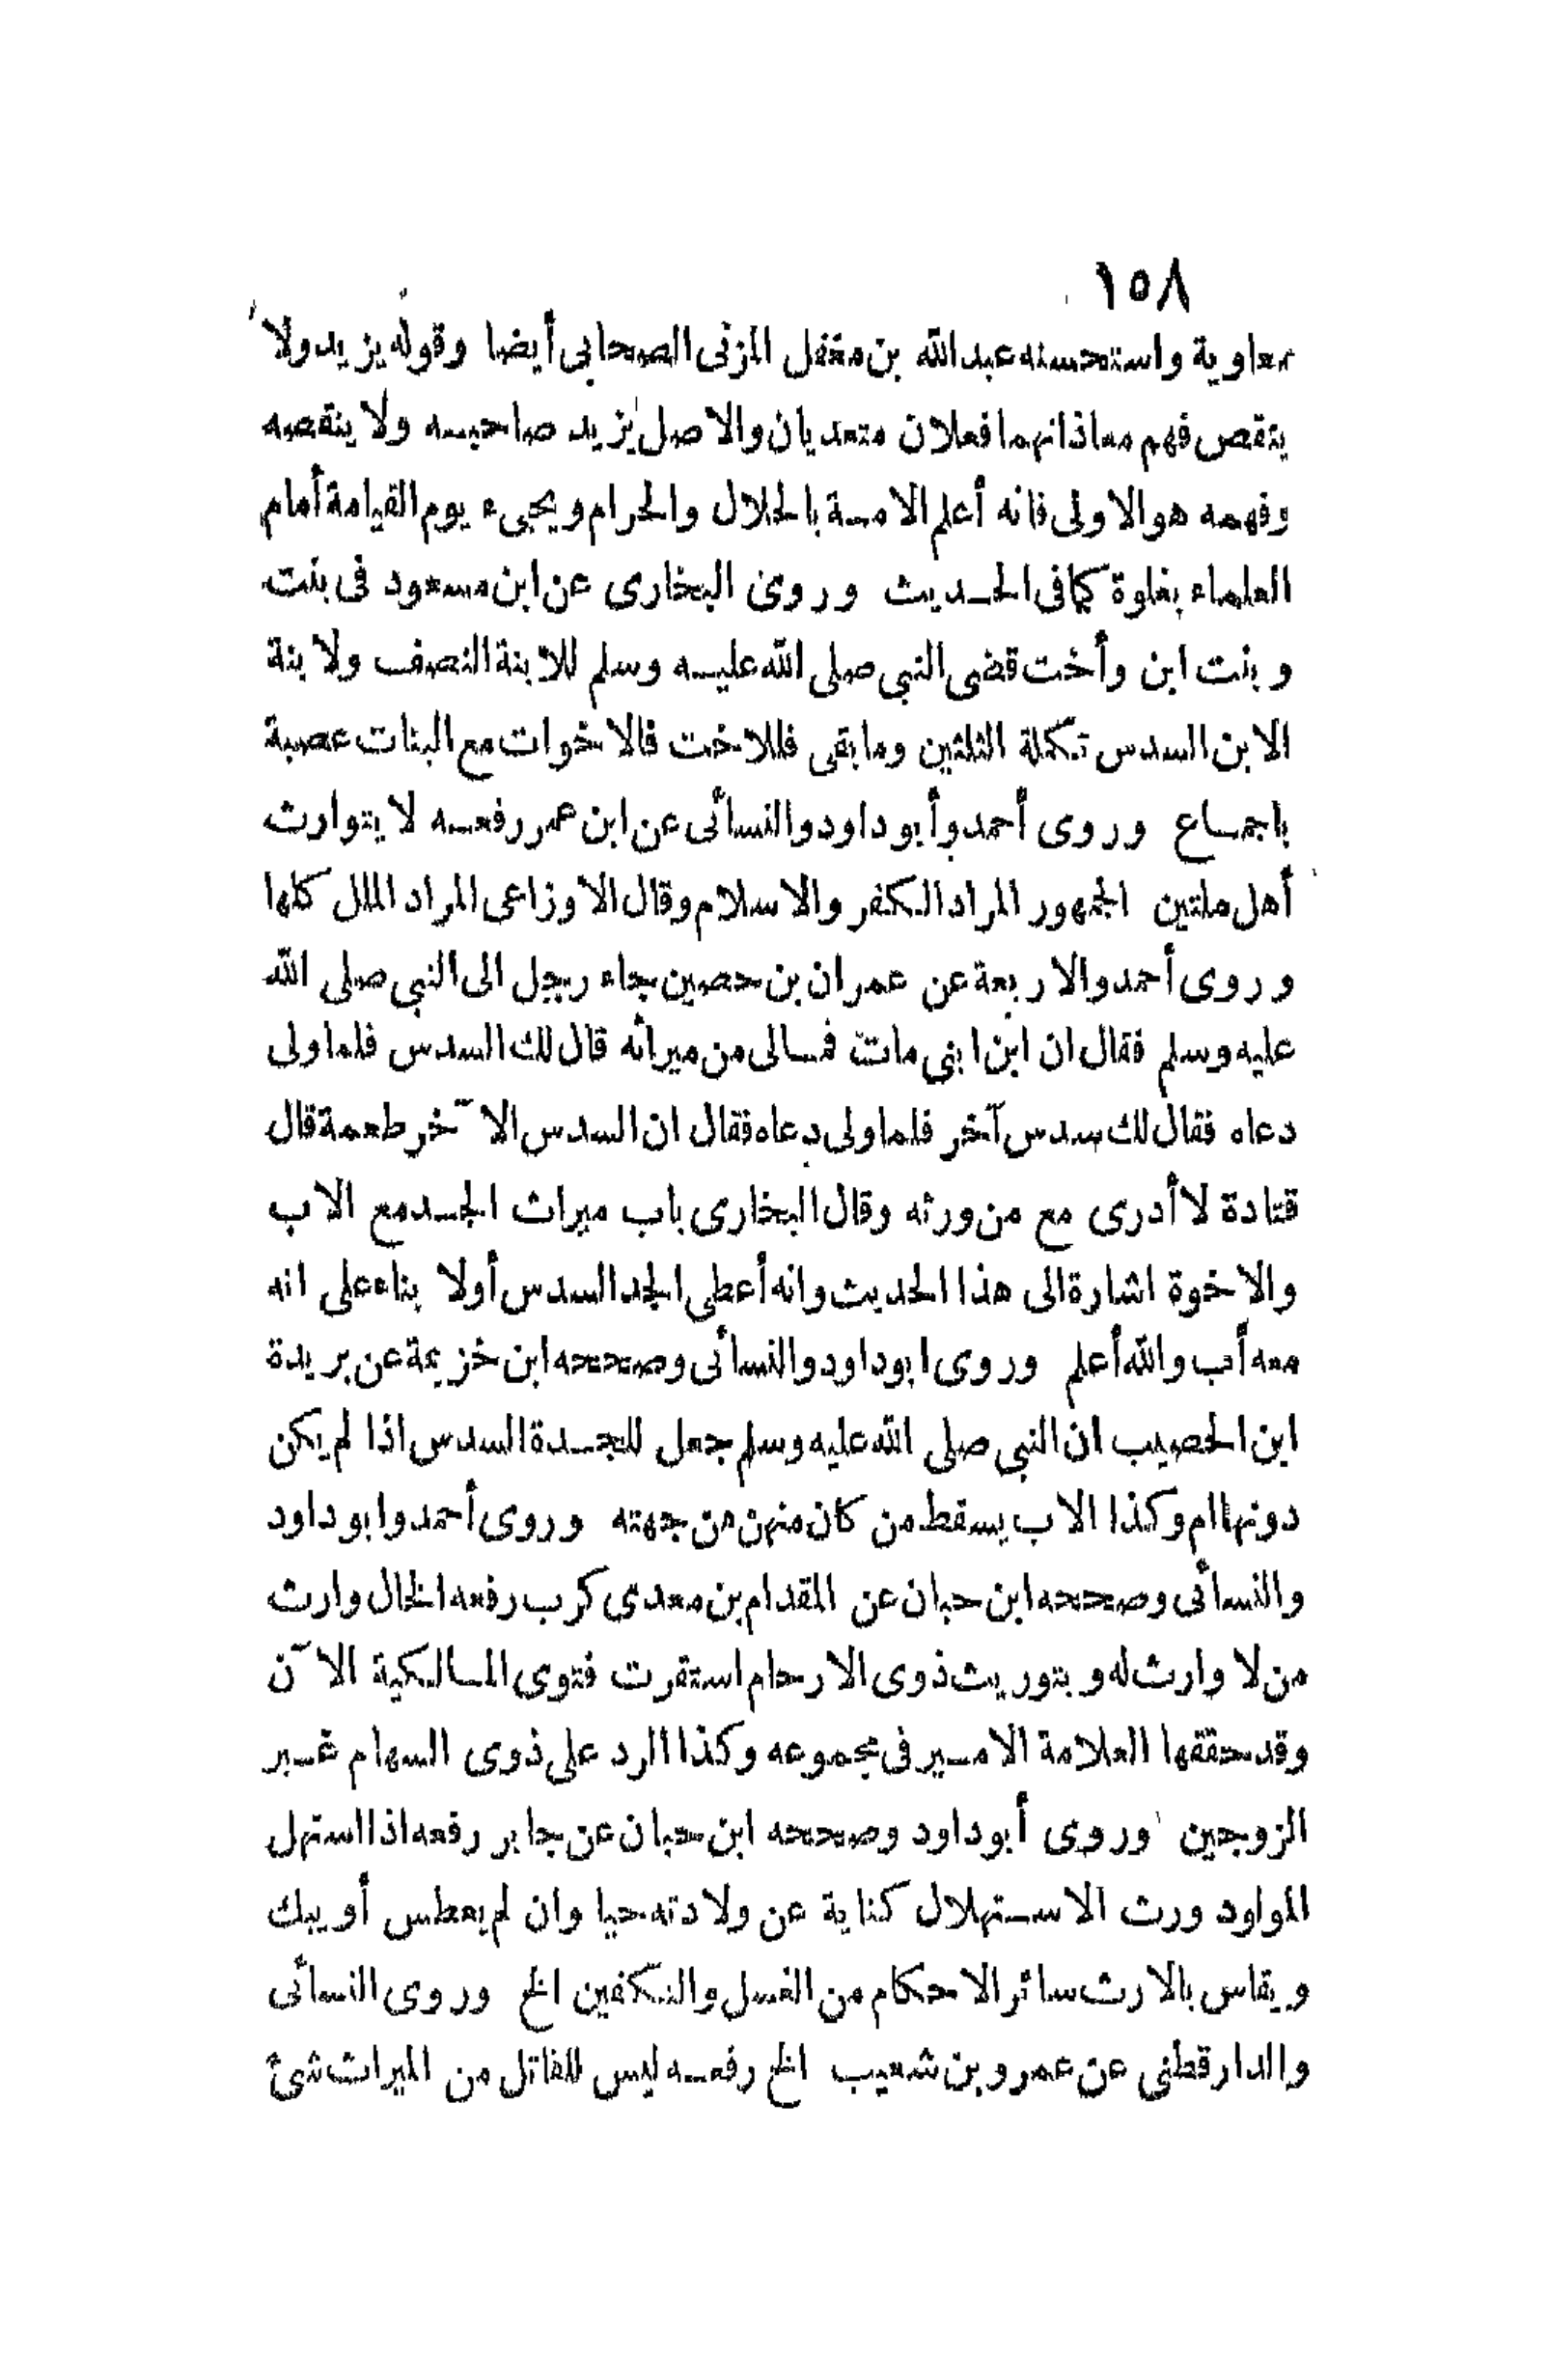 ١٥٨
معاوية واستحسنه عبد الله بن مغفل المزنى الصحابى أيضا وقوله يزيد ولا
ينقص فهم معاذ انهما فعلان متعديان والاصل يزيد صاحبه ولا ينقصه
وفهمه هو الاولى فانه أعلم الامة بالحلال والحرام ويجىء يوم القيامة أمام
العلماء بغلوة كما فى الحديث وروى البخارى عن ابن مسعود فى بنت
وبنت ابن وأخت قضى النبى صلى الله عليه وسلم للابنة النصف ولابنة
الابن السدس تكملة الثلثين وما بقى فللاخت فالاخوات مع البنات عصبة
باجماع وروى أحمد وأبو داود والنسائى عن ابن عمر رفعه لا يتوارث
أهل ملتين الجمهور المراد الكفر والاسلام وقال الاوزاعى المراد الملل كلها
وروى أحمد والاربعة عن عمران بن حصين جاء رجل الى النبى صلى الله
عليه وسلم فقال ان ابن ابنى مات فمالى من ميراثه قال لك السدس فلما ولى
دعاه فقال لك سدس آخر فلما ولى دعاه فقال ان السدس الآخر طعمة قال
قتادة لا أدرى مع من ورثه وقال البخارى باب ميراث الجد مع الاب
والاخوة اشارة الى هذا الحديث وانه أعطى الجد السدس أولا بناء على انه
معه أب والله أعلم وروى ابو داود والنسائى وصححه ابن خزيمة عن بريدة
ابن الحصيب ان النبى صلى الله عليه وسلم جعل للجدة السدس اذا لم يكن
دونها ام وكذا الاب يسقط من كان منهن من جهته وروى أحمد وابو داود
والنسائى وصححه ابن حبان عن المقدام بن معدى كرب رفعه الخال وارث
من لا وارث له وبتوريث ذوى الارحام استقرت فتوى المالكية الآن
وقد حققها العلامة الامير فى مجموعه وكذا الرد على ذوى السهام غير
الزوجين وروى أبو داود وصححه ابن حبان عن جابر رفعه اذا استهل
المولود ورث الاستهلال كناية عن ولادته حيا وان لم يعطس أو يبك
ويقاس بالارث سائر الاحكام من الغسل والتكفين الخ وروى النسائى
والدارقطنى عن عمرو بن شعيب الخ رفعه ليس للقاتل من الميراث شئ